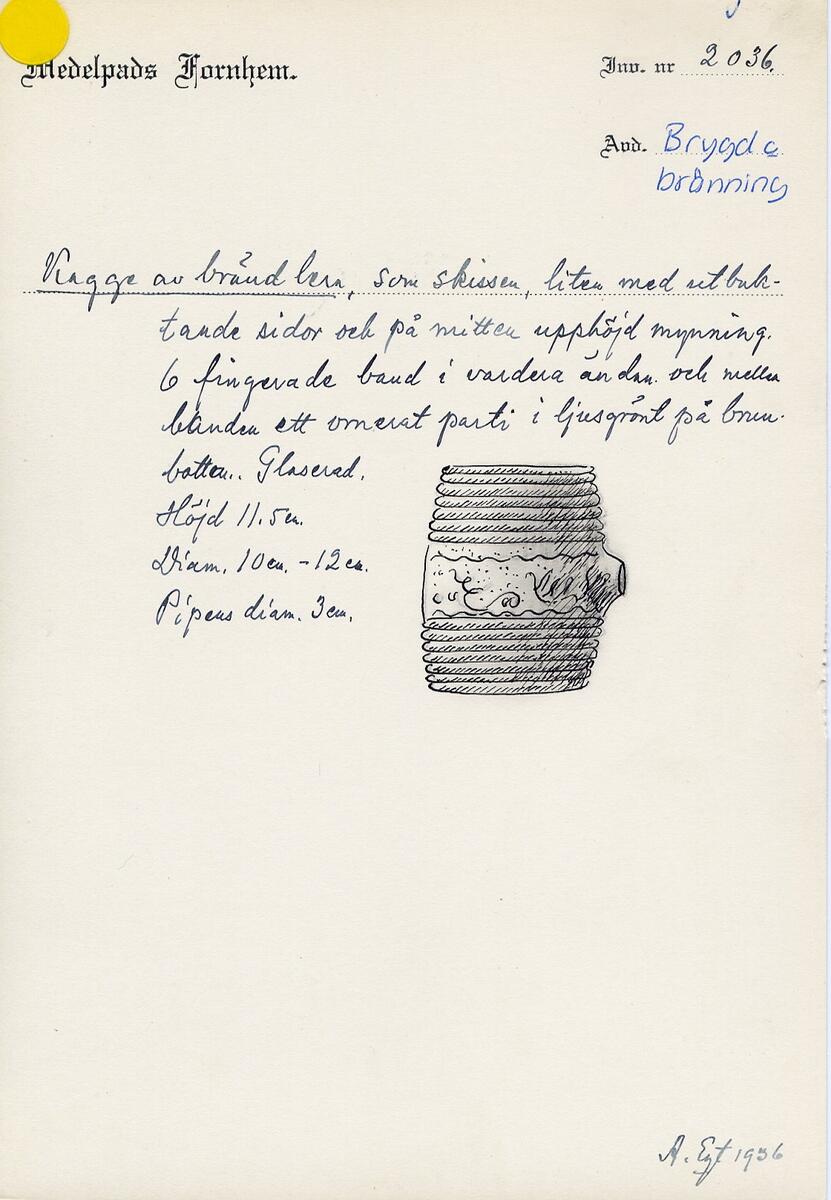 Medelpads Fornhem.
Inv. nr 2036.
Avd. Brygd o
bränning
Kagge av bränd lera, som skissen, liten med utbuk-
tande sidor och på mitten upphöjd mynning.
6 fingerade band i vardera ändan och mellan
banden ett ornerat parti i ljusgrönt på brun
botten. Glaserad.
Höjd 11.5 cm.
Diam. 10 cm. - 12 cm.
Pipens diam. 3 cm.
A. 1936